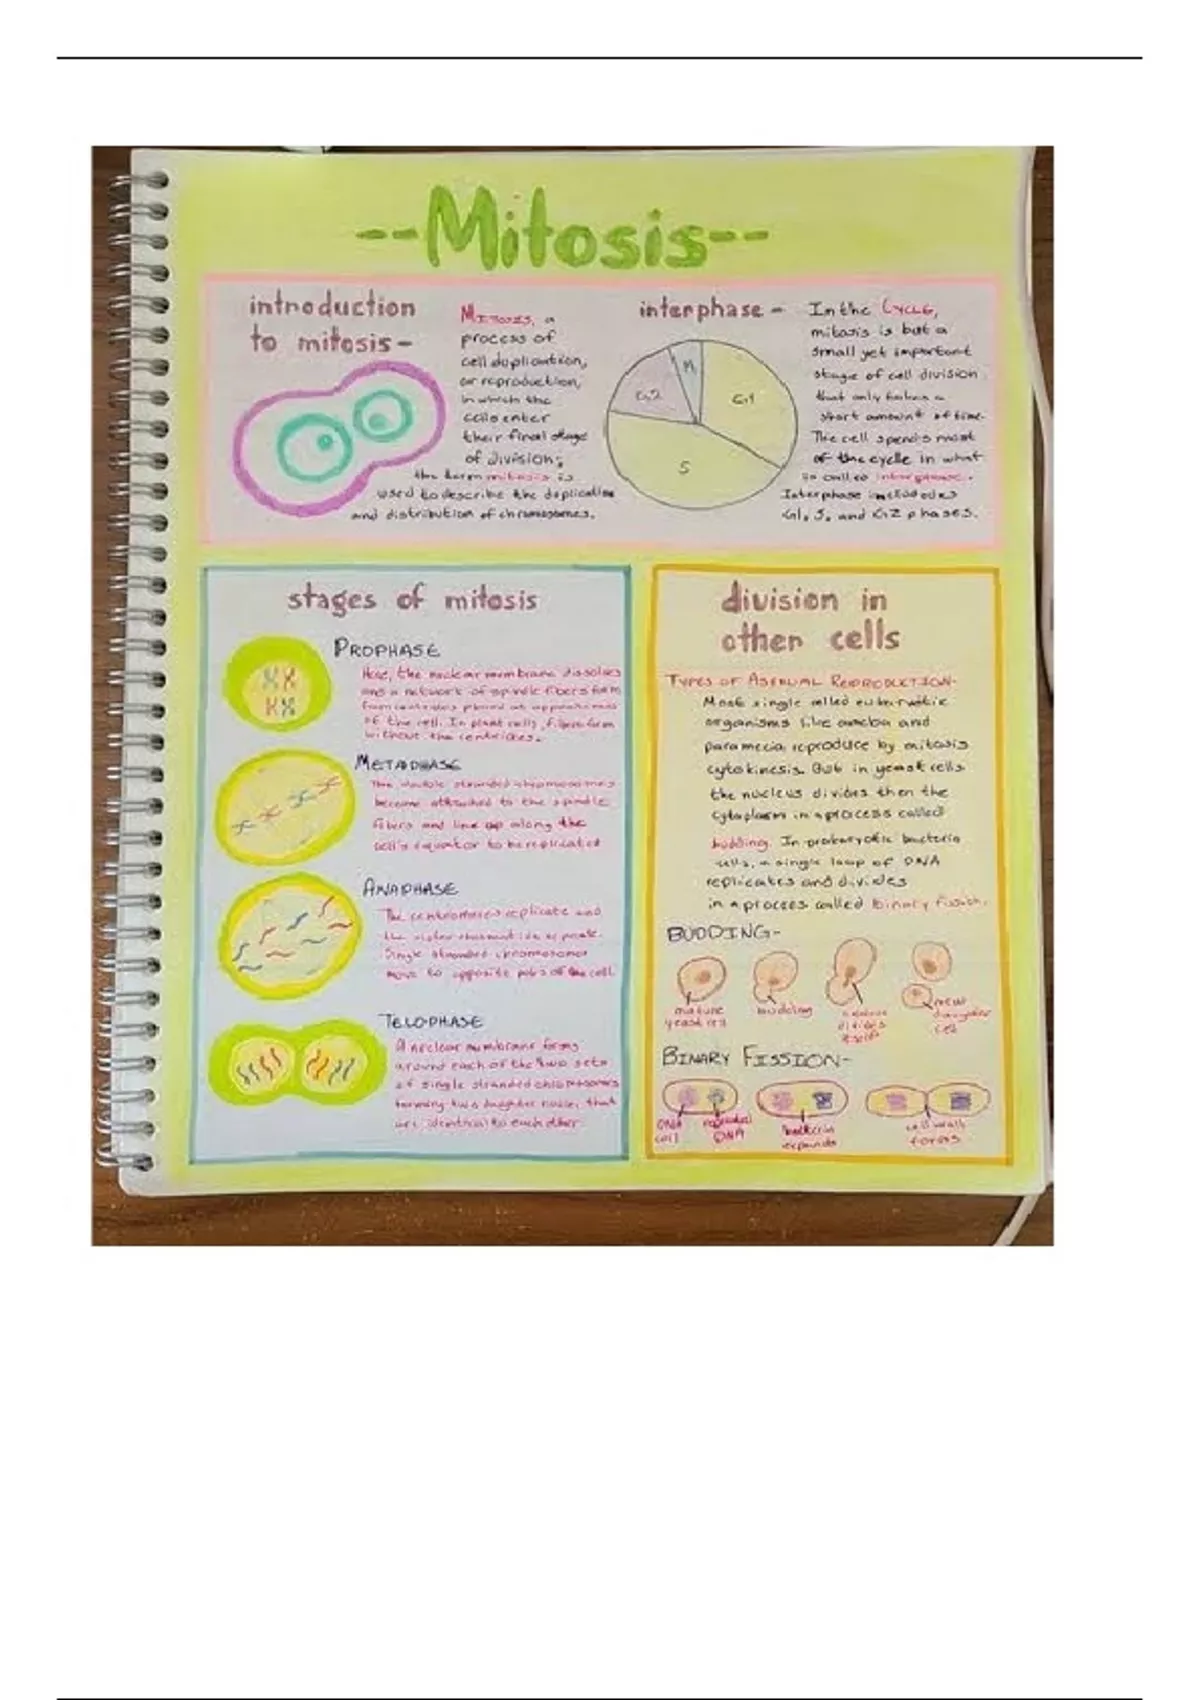 --Mitosis--
introduction
to mitosis-
MITOSIS, a
process of
cell duplication,
or reproduction,
in which the
cells enter
their final stage
of division;
the term mitosis is
used to describe the duplication
and distribution of chromosomes.
interphase-
M
G2
G1
S
In the CYCLE,
mitosis is but a
small yet important
stage of cell division
that only takes a
short amount of time.
The cell spends most
of the cycle in what
is called interphase.
Interphase includes
G1, S, and G2 phases.
stages of mitosis
PROPHASE
Here, the nuclear membrane dissolves
and a network of spindle fibers form
from centrioles placed at opposite
of the cell. In plant cells, fibers form
without the centrioles.
METAPHASE
The double stranded chromosomes
become attached to the spindle
fibers and line up along the
cell's equator to be replicated
ANAPHASE
The centromeres replicate and
the sister chromatids separate.
Single stranded chromosomes
move to opposite poles of the cell
TELOPHASE
A nuclear membrane forms
around each of the two sets
of single stranded chromosomes
forming two daughter nuclei, that
are identical to each other
division in
other cells
TYPES OF ASEXUAL REPRODUCTION-
Most single celled eukaryotic
organisms like ameba and
paramecia, reproduce by mitosis
cytokinesis. But in yeast cells
the nucleus divides then the
cytoplasm in a process called
budding. In prokaryotic bacteria
cells, a single loop of DNA
replicates and divides
in a process called binary fission.
BUDDING-
mature
yeast cell
budding
divides
itself
new
daughter
cell
BINARY FISSION-
DNA
cell
replicated
DNA
bacteria
expands
cell wall
forms